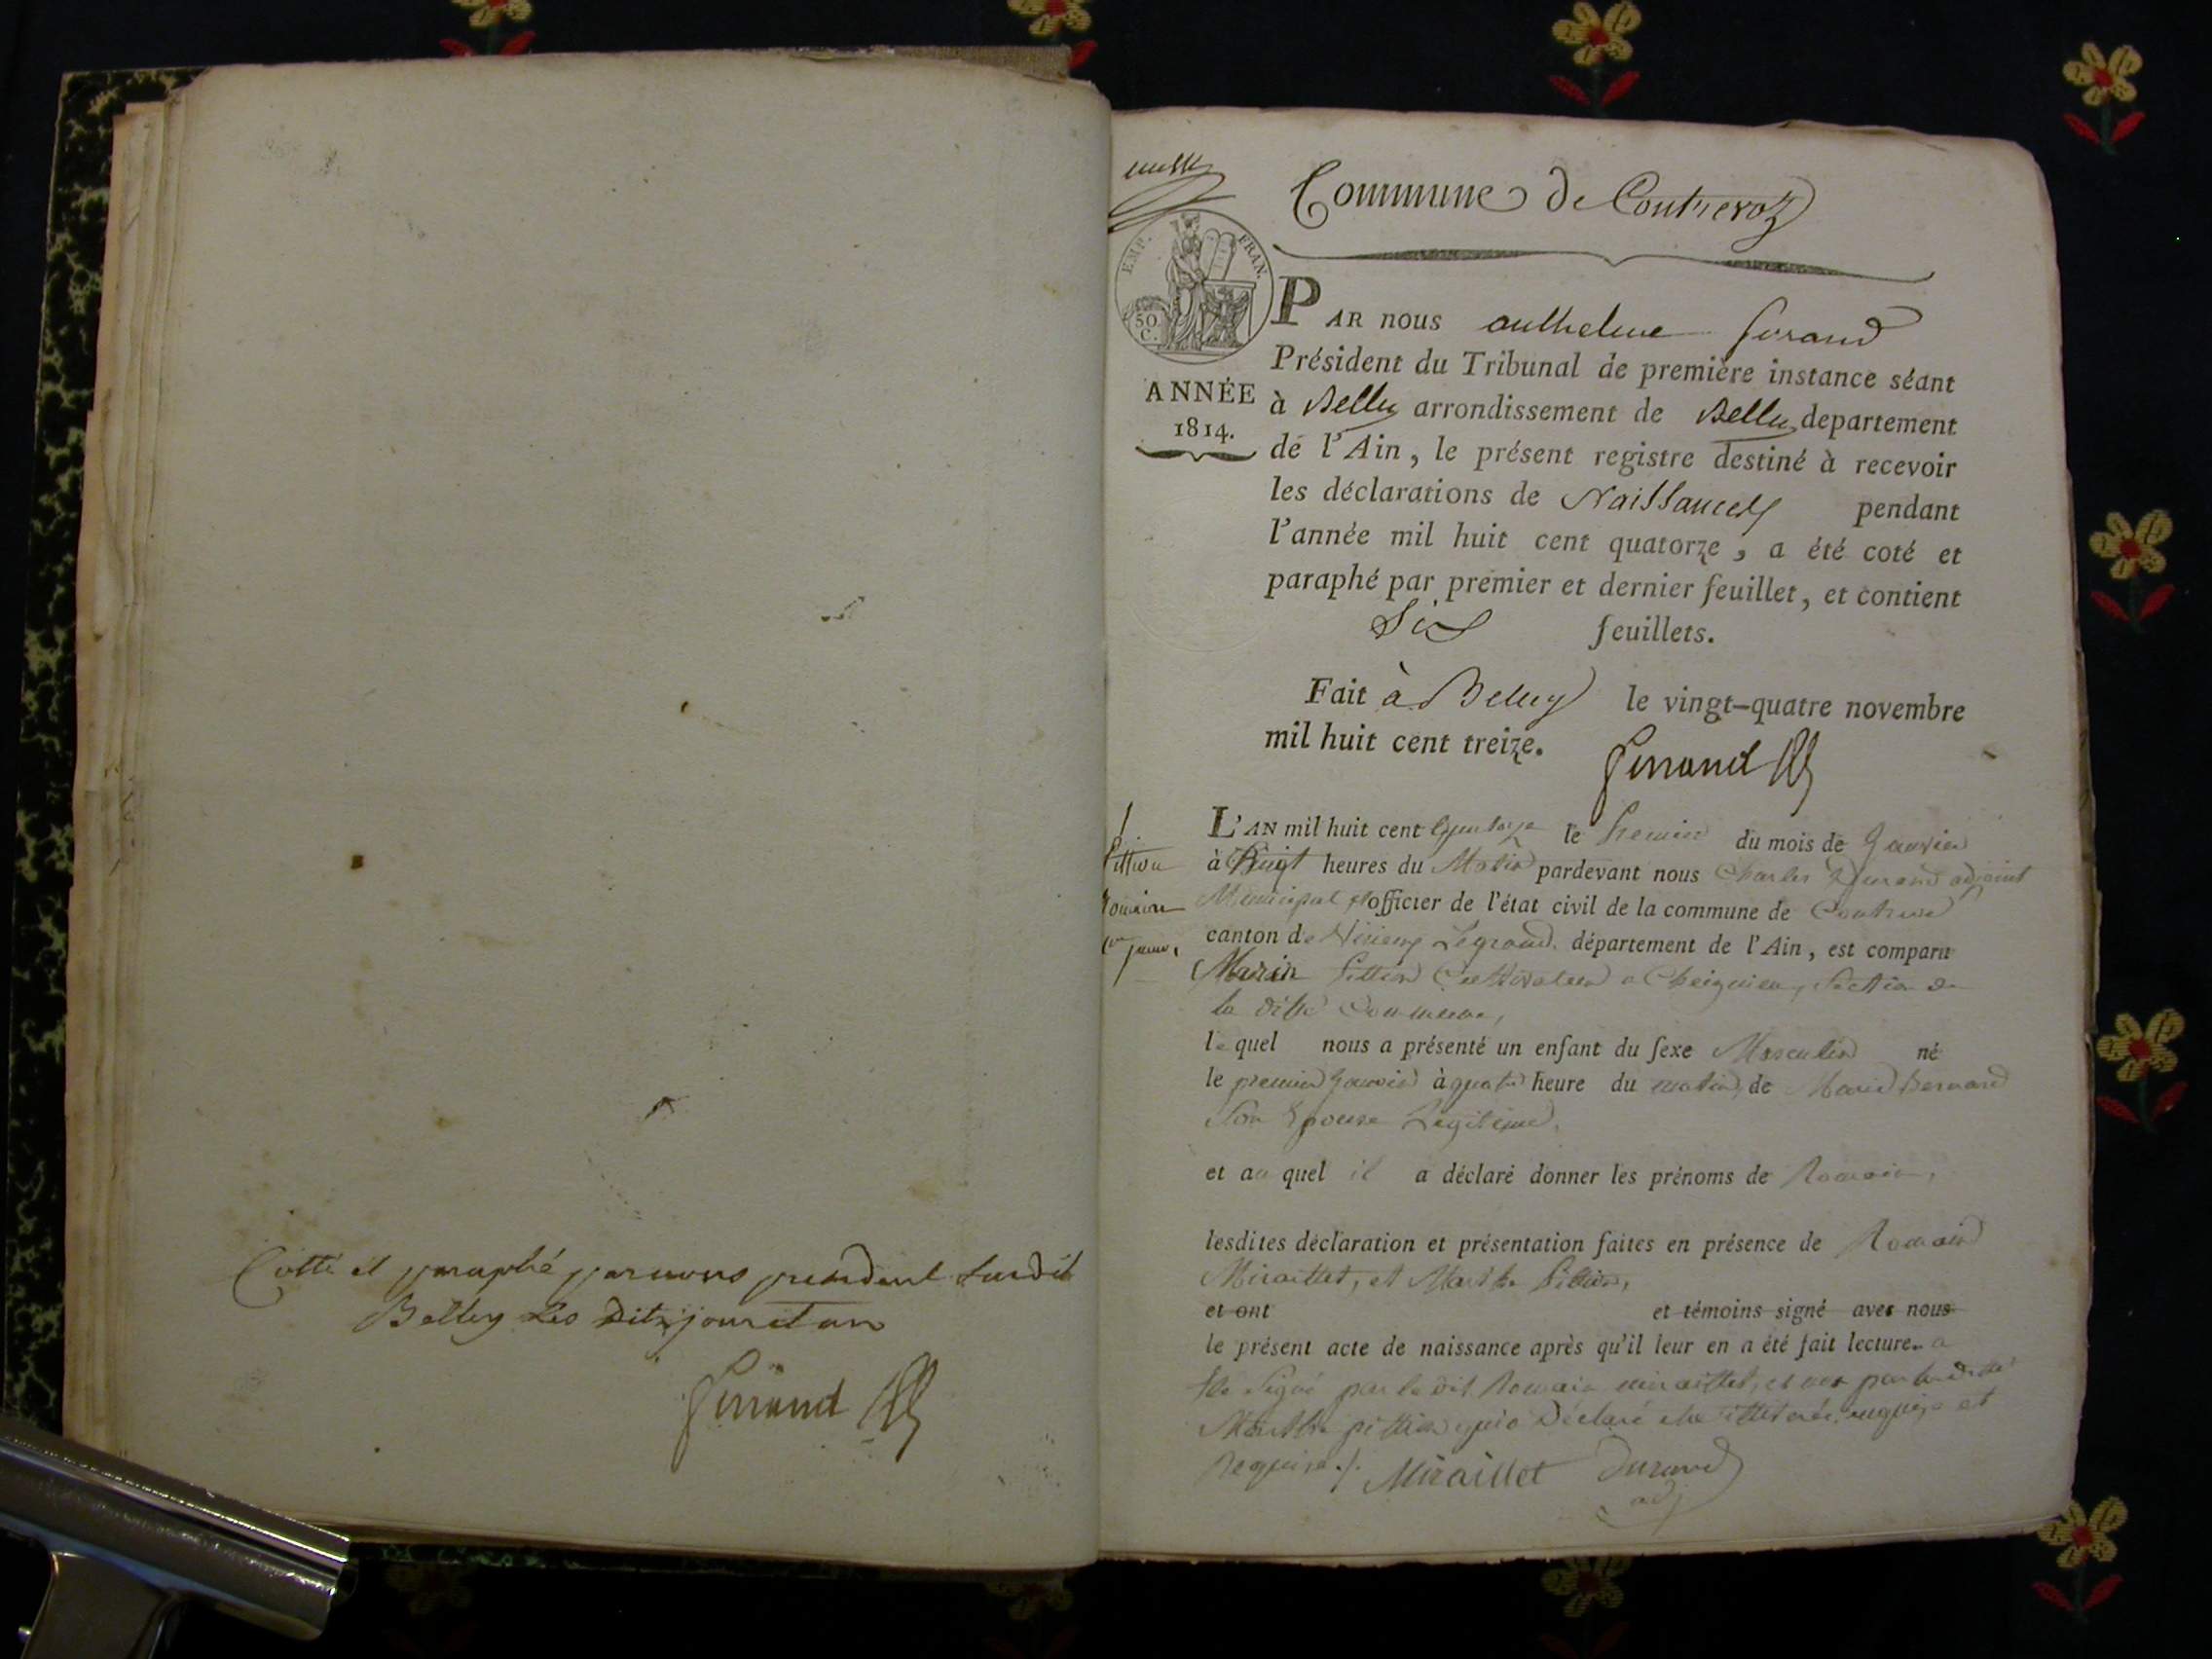 Cotté et paraphé par nous president susdit
Belley les dits jour et an
Girrand
Commune de Contrevoz
EMP. FRAN.
50 C.
PAR nous anthelme
Président du Tribunal de première instance séant
ANNÉE
1814.
à Belley arrondissement de Belley departement
de l'Ain, le présent registre destiné à recevoir
les déclarations de Naissances pendant
l'année mil huit cent quatorze, a été coté et
paraphé par premier et dernier feuillet, et contient
Six feuillets.
Fait à Belley le vingt-quatre novembre
mil huit cent treize.
Girrand
Pittion
Romain
1er janv.
L'AN mil huit cent quatorze le premier du mois de Janvier
à huit heures du Matin pardevant nous Charles Durand adjoint
Municipal et officier de l'état civil de la commune de Contrevoz
canton de Virieu Legrand département de l'Ain, est comparu
Marin Pittion Cultivateur a Cheignieu, Section de
la ditte Commune,
le quel nous a présenté un enfant du sexe Masculin né
le premier Janvier à quatre heure du matin, de Marie Bernard
Son Epouse Legitime,
et au quel il a déclaré donner les prénoms de Romain,
lesdites déclaration et présentation faites en présence de Romain
Miraillet, et Marthe Pittion,
et ont et témoins signé avec nous
le présent acte de naissance après qu'il leur en a été fait lecture. a
été Signé par le dit Romain miraillet, et non par la ditte
Marthe pittion qui a Déclaré etre illiterée, enquise et
Requise./. Miraillet Durand
adj